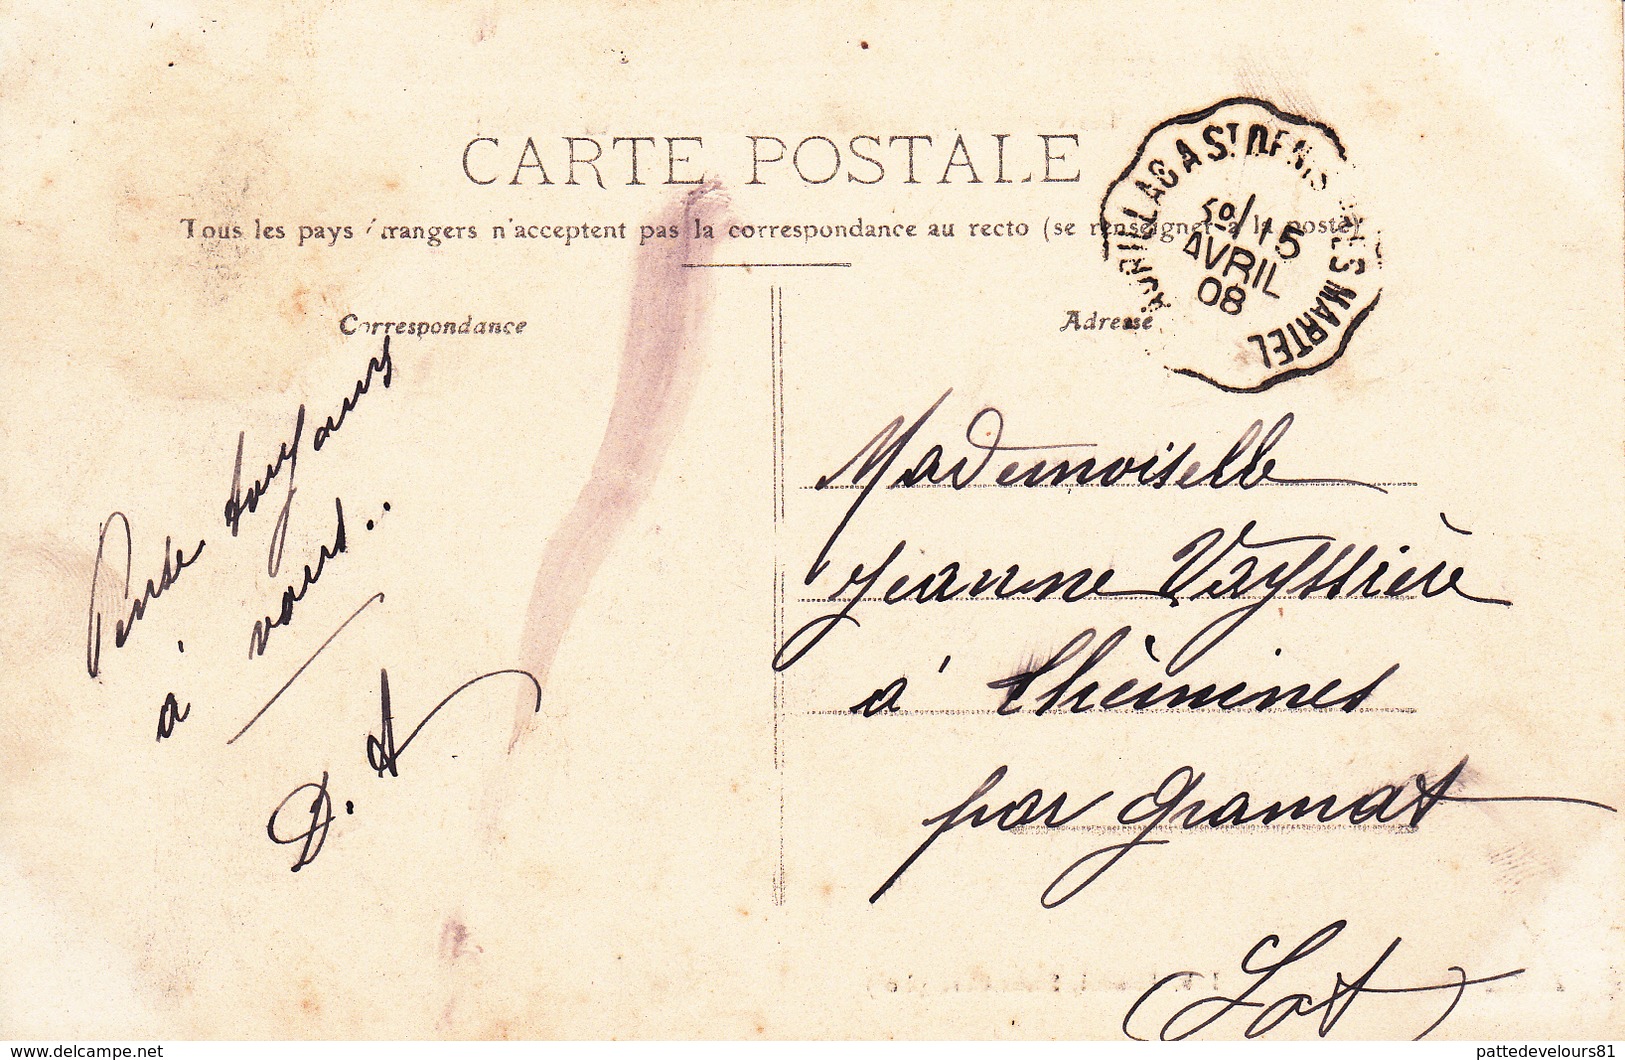 CARTE POSTALE
Tous les pays étrangers n'acceptent pas la correspondance au recto (se renseigner à la poste)
Correspondance
Adresse
AURILLAC A ST DENIS LES MARTEL
15
AVRIL
08
Pense toujours
à vous..
D. A
Mademoiselle
Jeanne Vayssière
à Thémines
par Gramat
Lot
delcampe.net
pattedevelours81